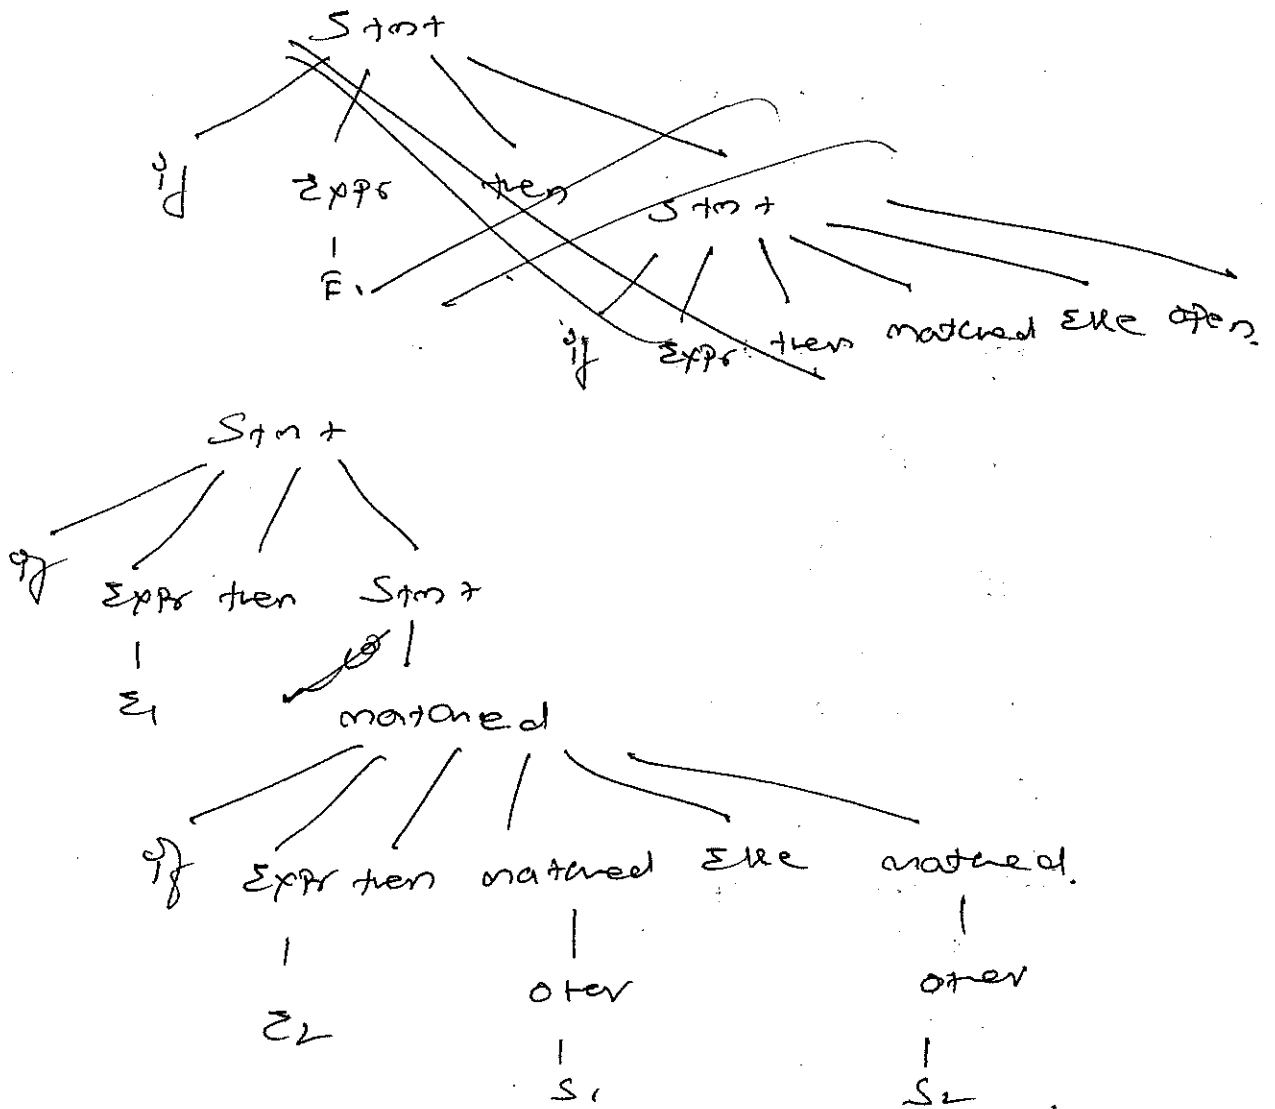 Stmt
if Expr then Stmt
E1
if Expr then matched Else open
Stmt
if Expr then Stmt
E1
matched
if Expr then matched Else matched.
E2 other other
S1 S2